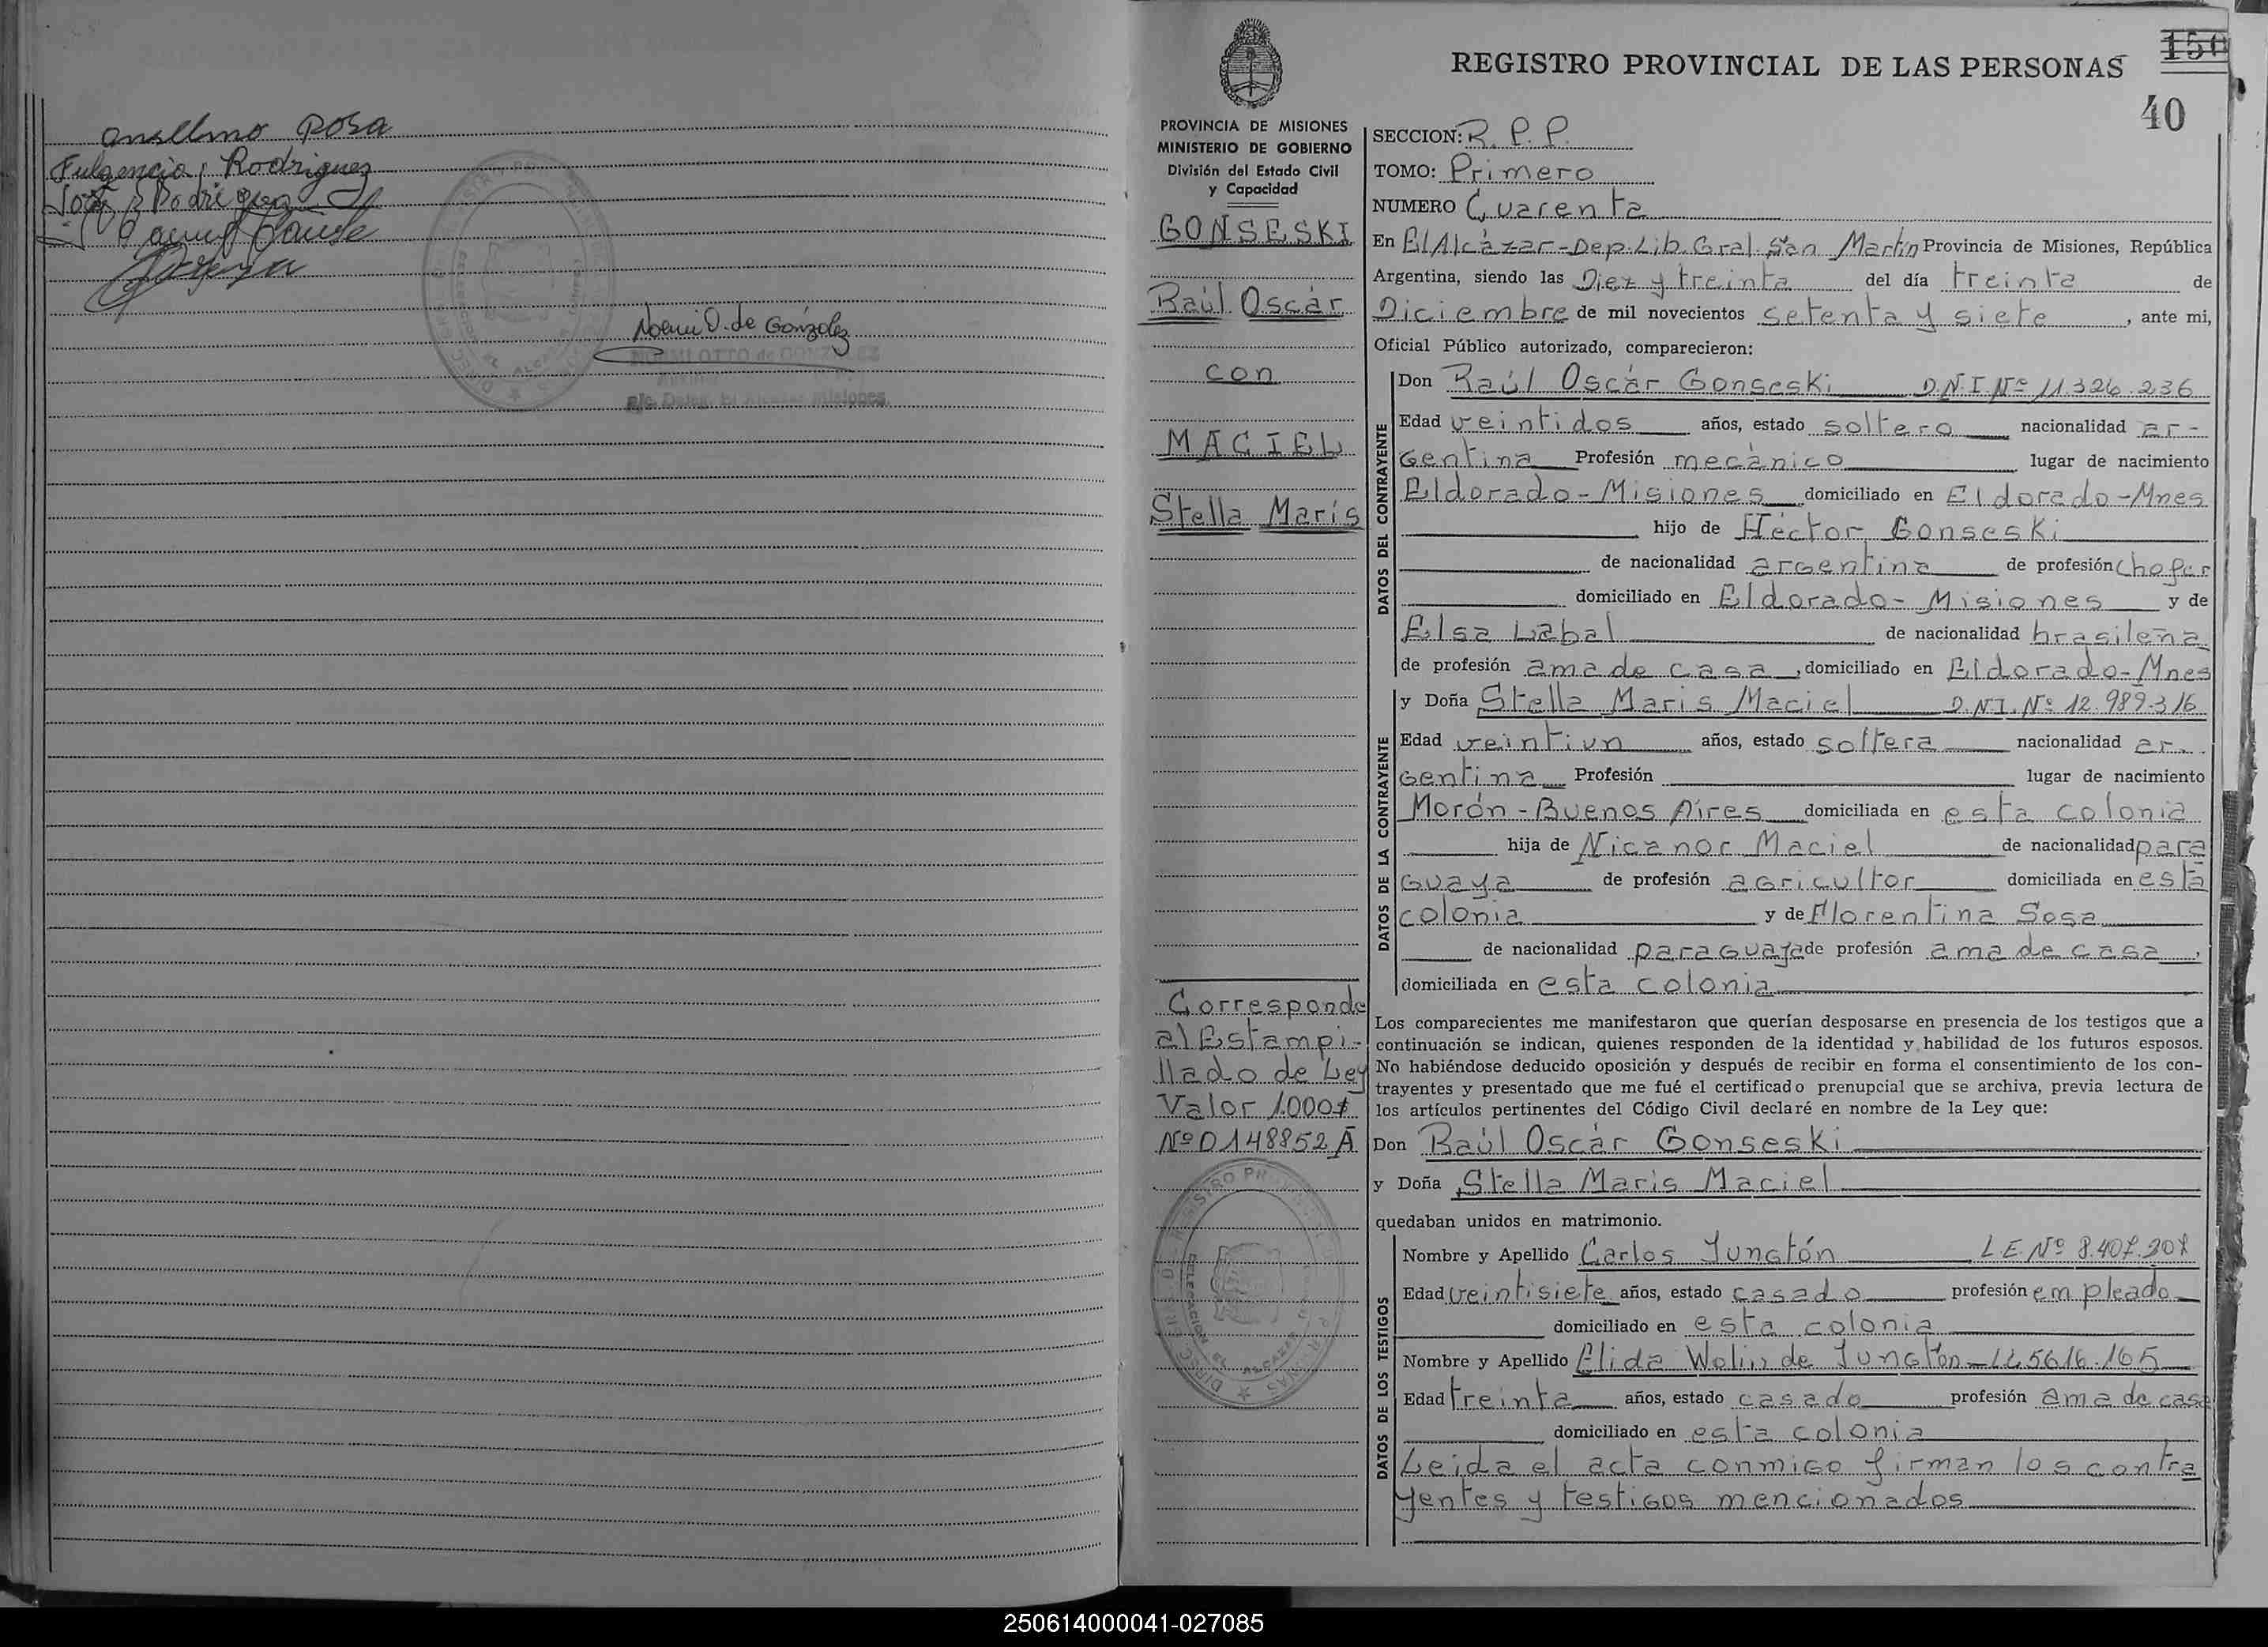 Anselmo Rosa
Fulgencio Rodriguez
Noemi O. de González
NOEMI OTTO de GONZALEZ
REGISTRO PROVINCIAL DE LAS PERSONAS
150
40
PROVINCIA DE MISIONES
MINISTERIO DE GOBIERNO
División del Estado Civil
y Capacidad
GONSESKI
Raúl Oscár
con
MACIEL
Stella Marís
Corresponde
al Estampi-
llado de Ley
Valor 1.000$
Nº 0148852 A
SECCION: R. P. P.
TOMO: Primero
NUMERO Cuarenta
En El Alcázar-Dep. Lib. Gral. San Martín Provincia de Misiones, República
Argentina, siendo las Diez y treinta del día treinta de
Diciembre de mil novecientos setenta y siete, ante mi,
Oficial Público autorizado, comparecieron:
DATOS DEL CONTRAYENTE
Don Raúl Oscár Gonseski D.N.I. Nº 11.326.236
Edad veintidos años, estado soltero nacionalidad ar-
gentina Profesión mecánico lugar de nacimiento
Eldorado-Misiones domiciliado en Eldorado-Mnes
hijo de Héctor Gonseski
de nacionalidad argentina de profesión chofer
domiciliado en Eldorado-Misiones y de
Elsa Labal de nacionalidad brasileña
de profesión ama de casa, domiciliado en Eldorado-Mnes
DATOS DE LA CONTRAYENTE
y Doña Stella Maris Maciel D.N.I. Nº 12.989.316
Edad veintiun años, estado soltera nacionalidad ar-
gentina Profesión lugar de nacimiento
Morón-Buenos Aires domiciliada en esta colonia
hija de Nicanor Maciel de nacionalidad para
guaya de profesión agricultor domiciliada en esta
colonia y de Florentina Sosa
de nacionalidad paraguaya de profesión ama de casa,
domiciliada en esta colonia
Los comparecientes me manifestaron que querían desposarse en presencia de los testigos que a
continuación se indican, quienes responden de la identidad y habilidad de los futuros esposos.
No habiéndose deducido oposición y después de recibir en forma el consentimiento de los con-
trayentes y presentado que me fué el certificado prenupcial que se archiva, previa lectura de
los artículos pertinentes del Código Civil declaré en nombre de la Ley que:
Don Raúl Oscár Gonseski
y Doña Stella Maris Maciel
quedaban unidos en matrimonio.
DATOS DE LOS TESTIGOS
Nombre y Apellido Carlos Jungtón L.E. Nº 8.407.207
Edad veintisiete años, estado casado profesión empleado
domiciliado en esta colonia
Nombre y Apellido Elida Wolin de Jungtón-LC 5616.165
Edad treinta años, estado casado profesión ama de casa
domiciliado en esta colonia
Leida el acta conmigo firman los contra
yentes y testigos mencionados
250614000041-027085